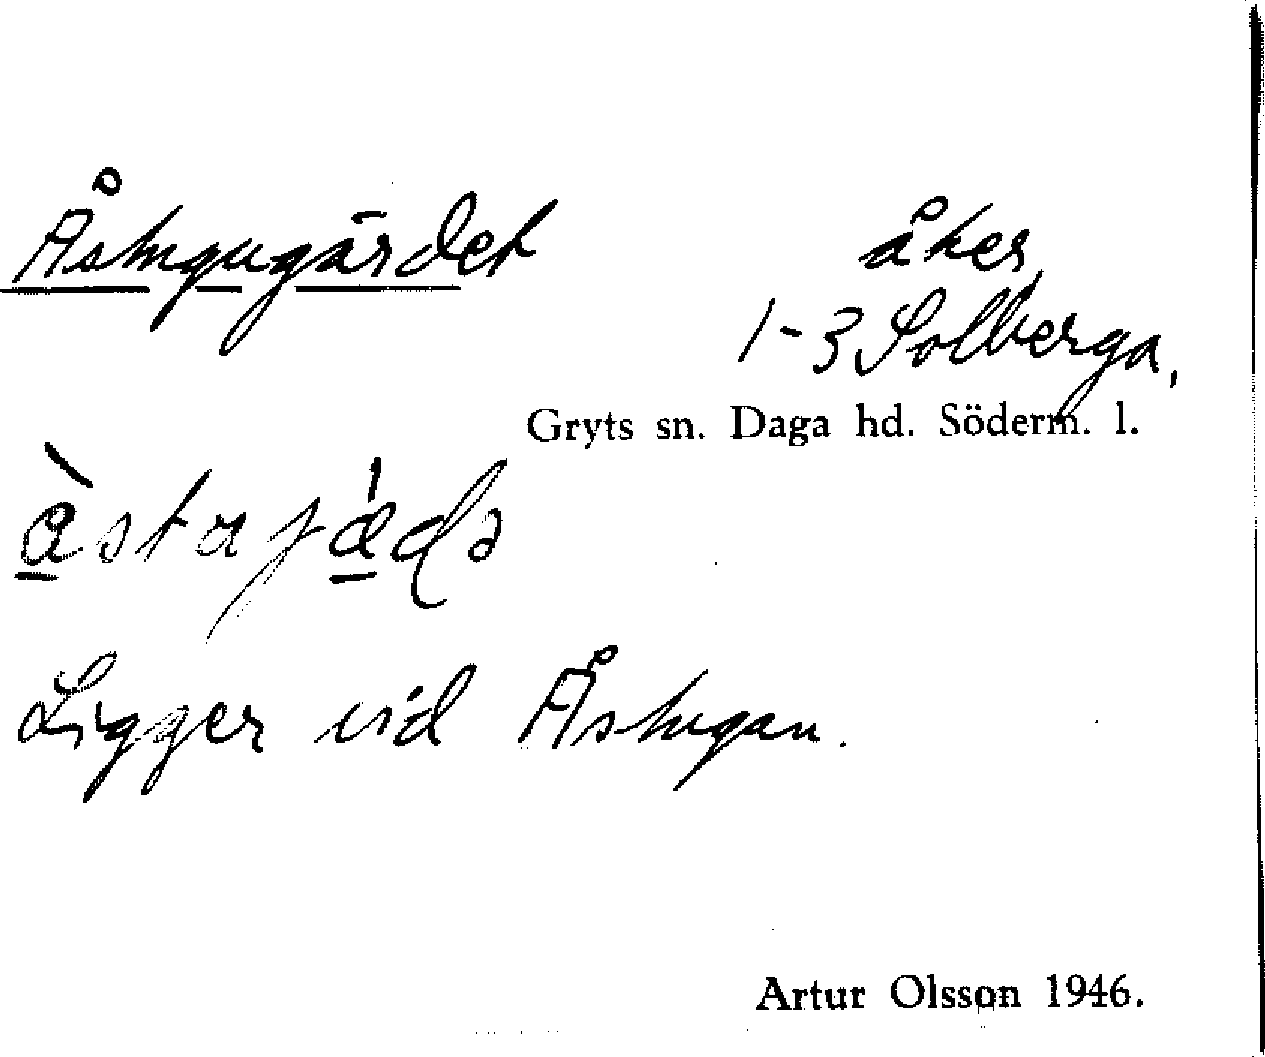 Åstugugärdet åker,
1-3 Solberga,
Gryts sn. Daga hd. Söderm. l.
Ligger vid Åstugan.
Artur Olsson 1946.